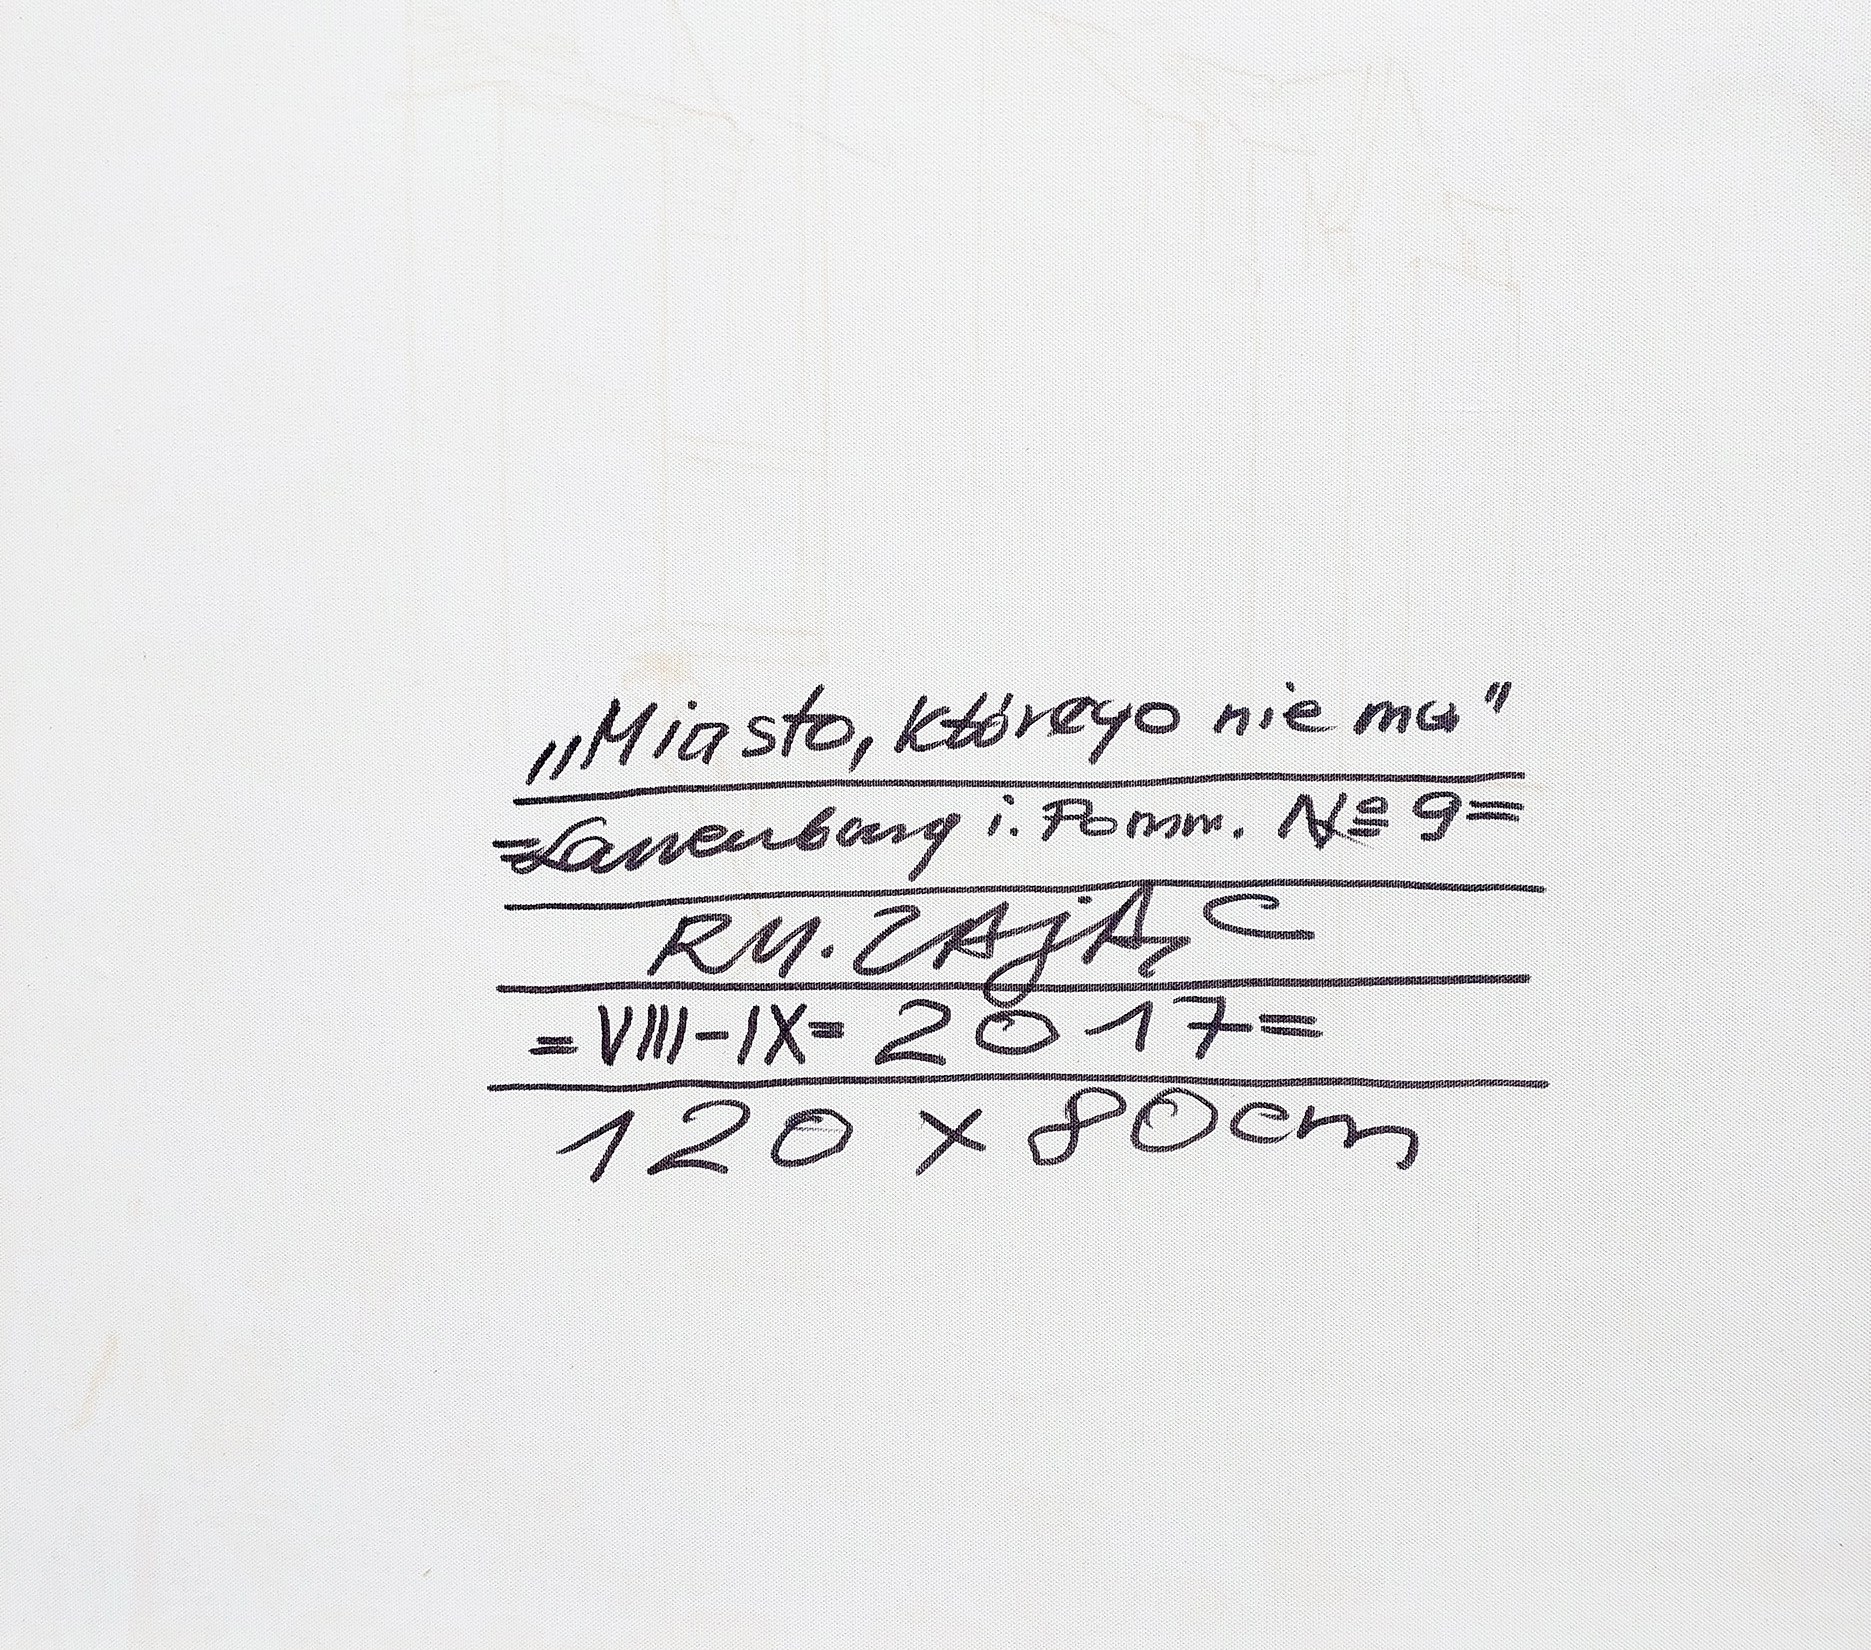 „Miasto, którego nie ma”
=Lauenburg i. Pomm. № 9=
RM. ZAJĄC
=VIII-IX= 2017=
120 x 80cm